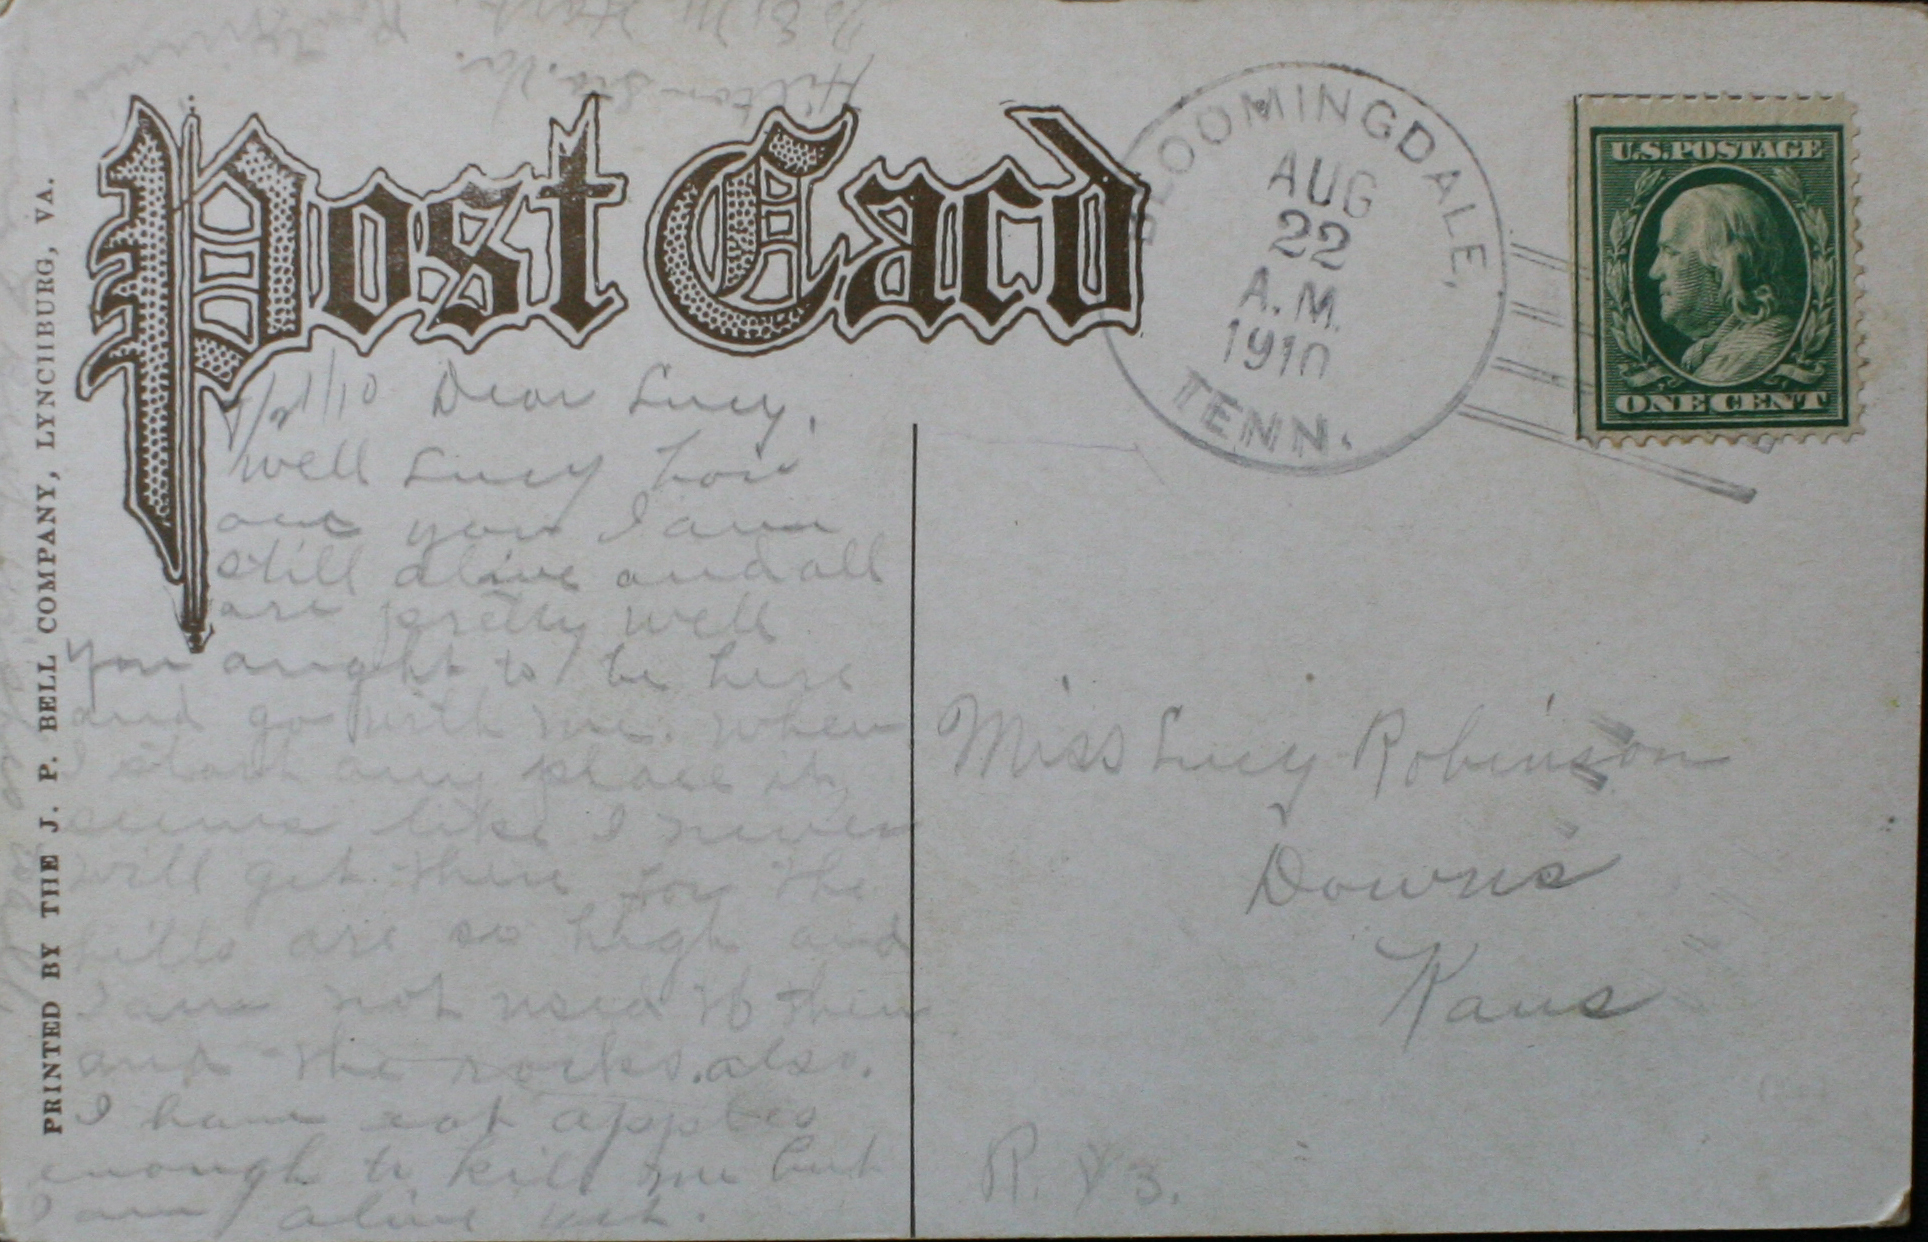 Post Card
PRINTED BY THE J. P. BELL COMPANY, LYNCHBURG, VA.
BLOOMINGDALE,
AUG
22
A.M.
1910
TENN.
U.S. POSTAGE
ONE CENT
Hilton Sta. Va.
Dear Lucy,
Well Lucy how
are you I am
still alive and all
are pretty well
You aught to be here
and go with me. When
I start any place it
seems like I never
will get there for the
hills are so high and
I am not used to them
and the rocks. also.
I have eat apples
enough to kill me but
I am alive yet.
Miss Lucy Robinson
Downs
Kans
R. 3.